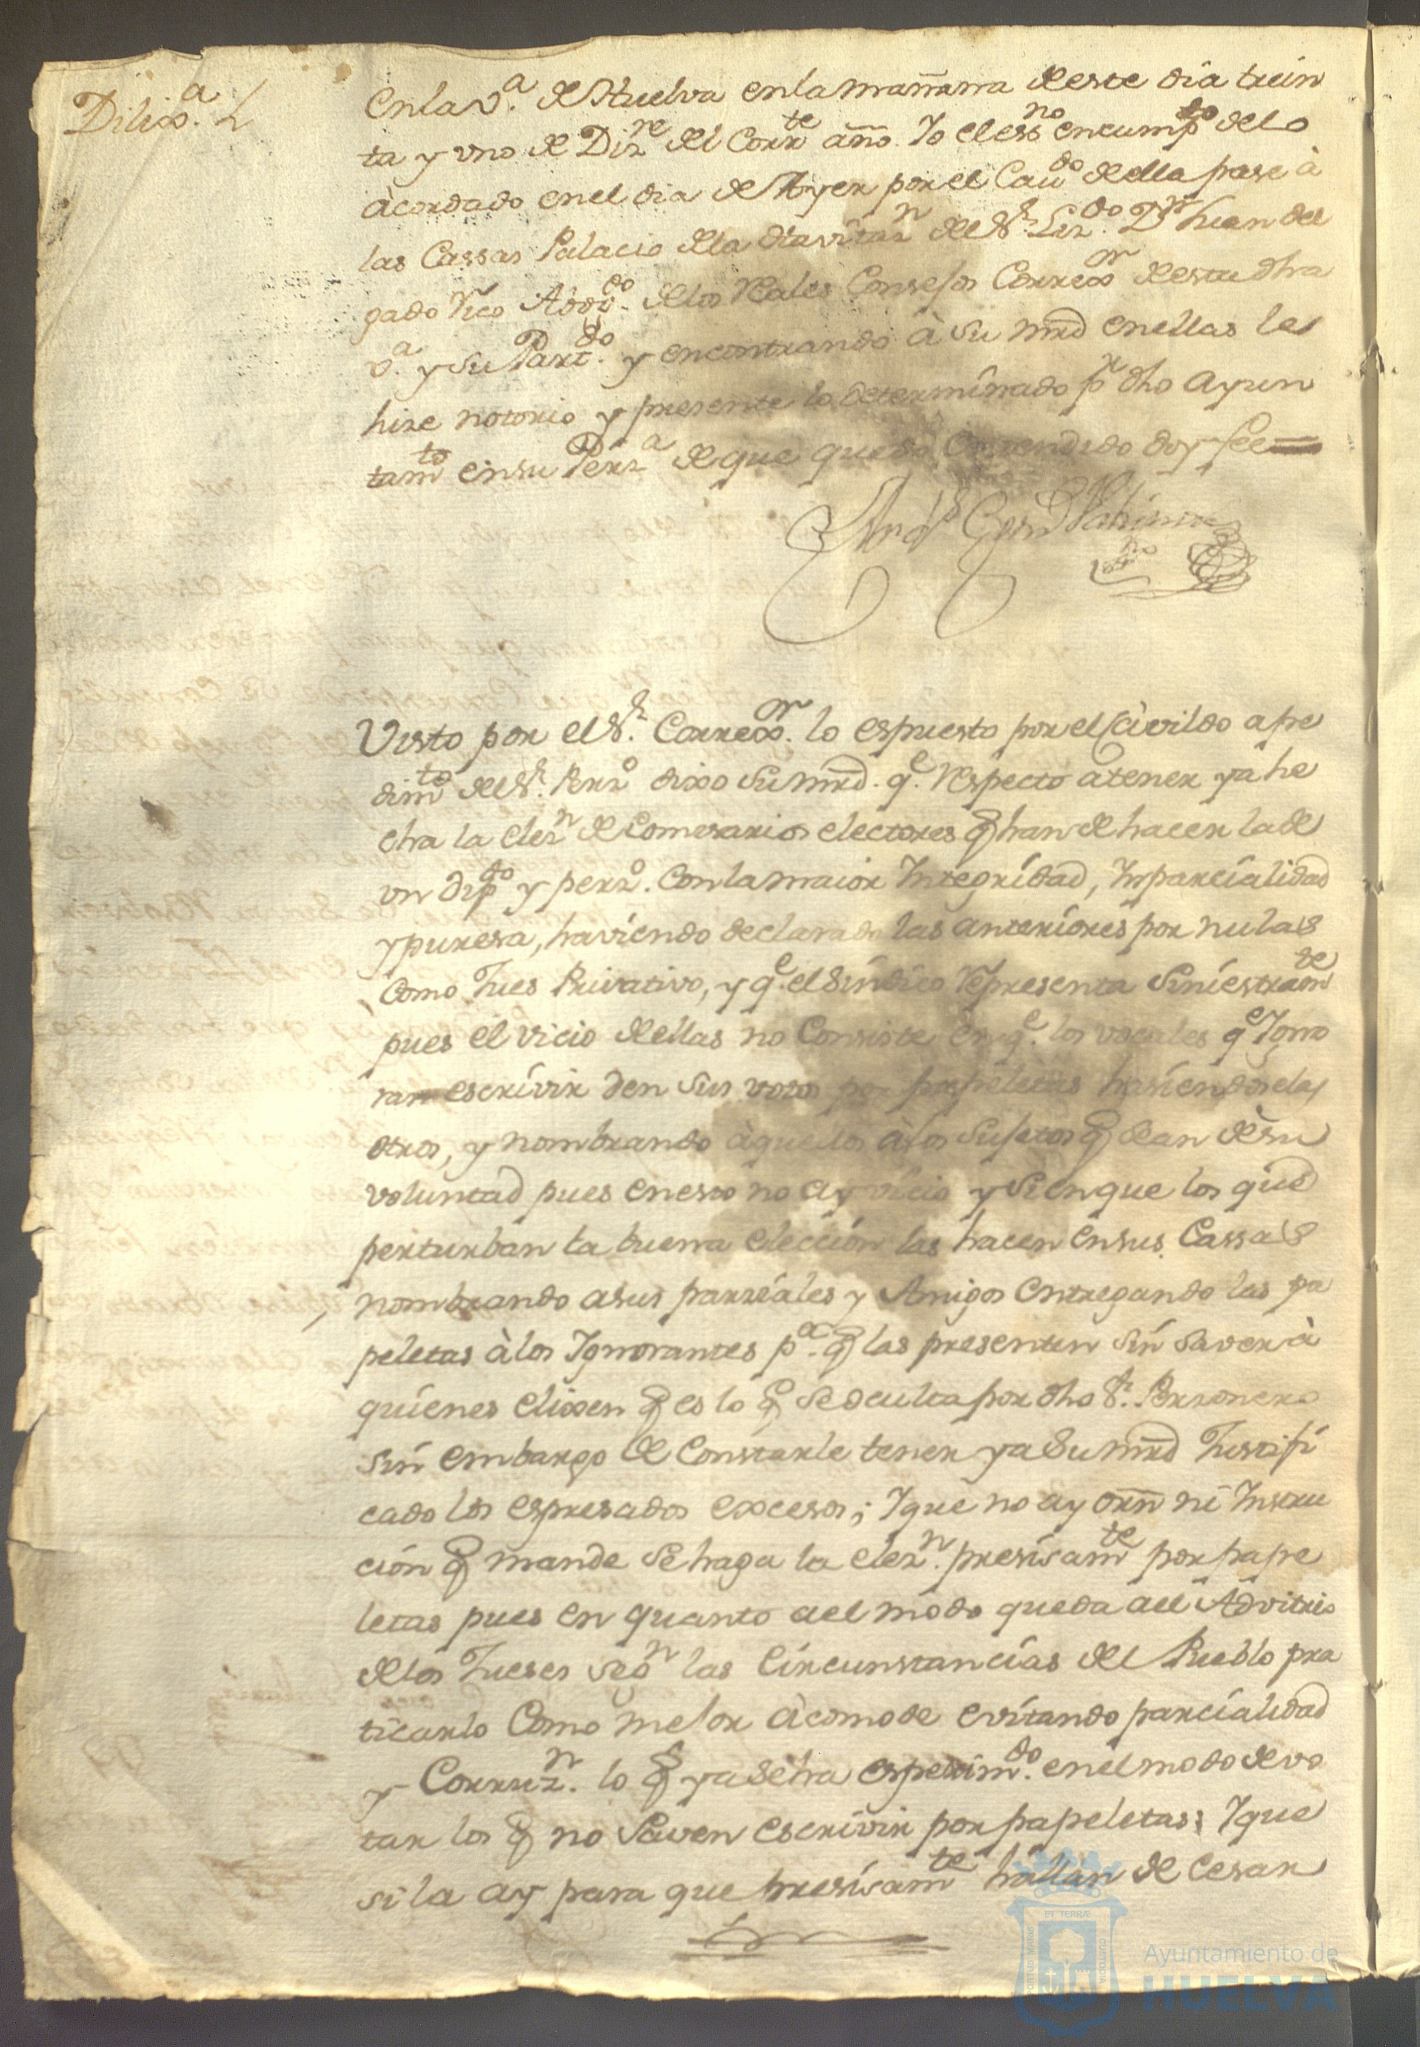 Dilixª.
En la vª. de Huelva en la mañana de este dia trein
ta y vno de Dizre del Corrte año. Yo el essno en cumpto de lo
àcordado en el dia de Ayer por el Caudo de ella pase à
las Cassas Palacio de la Havitazn del Sr. Lizdo. Dn Juan del
gado Vico Abogdo. de los Reales Consejos Correxor de esta dha
vª. y su Partdo. y encontrando à su mrd en ellas le
hize notorio y presente lo determinado pr dho Ayun
tamto en su Perzª de que quedó entendido doy fee
Visto por el Sr. Correxor. lo espuesto por el Càvildo a pe
dimto del Sr. Perzo dixo su mrd. qe. respecto a tener ya he
cha la elezn de Comesarios electores q han de hacer la de
vn Dipdo y perzo. con la maior Integridad, Inparcialidad
y puresa, haviendo declarado las anteriores por nulas
como Jues Privativo, y qe. el Sindico representa Siniestramte
pues el vicio de ellas no Consiste en qe. los vocales qe Igno
ran escrivir den sus votos por papeletas hasiendoselas
otros, y nombrando àquellos à los sujetos q sean de su
voluntad pues en esto no ay vicio y si en que los que
perturban la buena elección las hacen en sus Cassas
nombrando a sus parziales y Amigos entregando las pa
peletas à los Ignorantes pª. q las presenten sin saver à
quienes elixen q es lo q se oculta por dho Sr. Perzonero
sin embargo de Constarle tener ya Su mrd Justifi
cado los espresados excesos; Y que no ay orñ ni Instru
ción q mande se haga la elezn. presisamte por pape
letas pues en quanto a el modo queda a el Advitrio
de los Jueses segn las Circunstancias del Pueblo pra
ticarlo Como mejor àcomode evitando parcialidad
y Corruzn. lo q ya se ha esperimdo. en el modo de vo
tar los q no Saven escrivir por papeletas; Y que
si la ay para que presisamte hallan de cesar
Ayuntamiento de
HUELVA